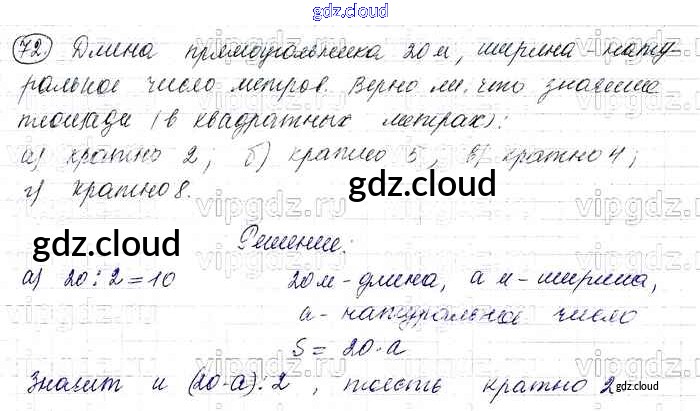 gdz.cloud
72. Длина прямоугольника 20 м, ширина – нату-
ральное число метров. Верно ли, что значение
площади (в квадратных метрах):
а) кратно 2; б) кратно 5; в) кратно 4;
г) кратно 8.
gdz.cloud
gdz.cloud
Решение:
а) 20 : 2 = 10 20 м - длина, а м - ширина,
а - натуральное число
S = 20 · а
Значит и (20·а) : 2 , то есть кратно 2
gdz.cloud
vipgdz.ru